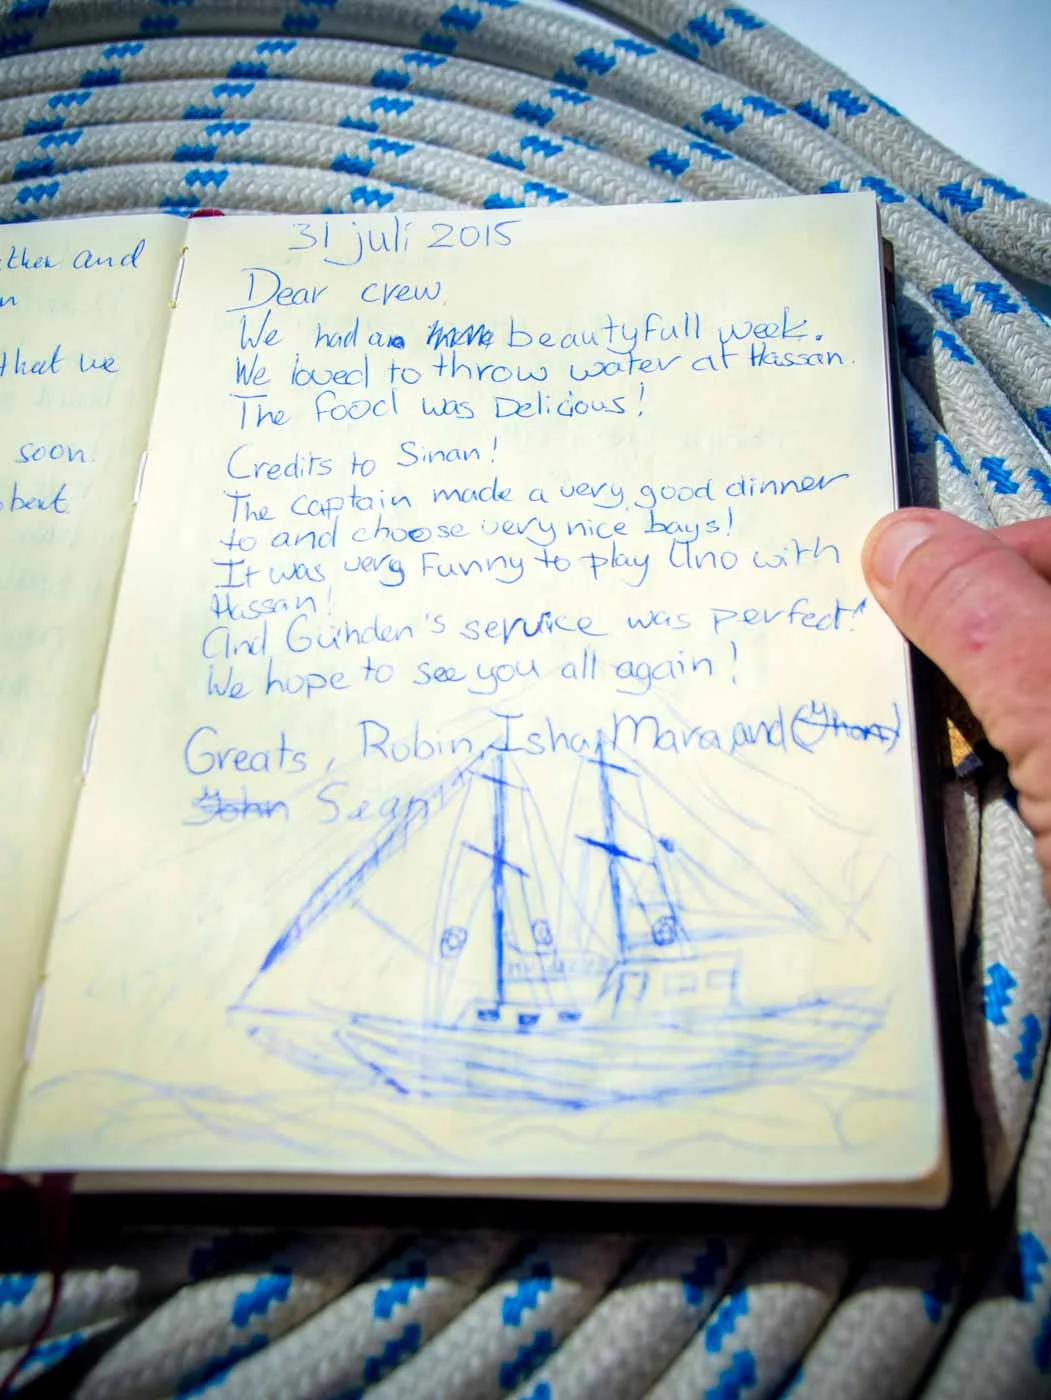 and
n
that we
soon.
31 juli 2015
Dear crew,
We had a beautyfull week.
We loved to throw water at Hassan.
The food was Delicious!
Credits to Sinan!
The captain made a very good dinner
to and choose very nice bays!
It was very Funny to play Uno with
Hassan!
And Günden's service was perfect!
We hope to see you all again!
Greats, Robin, Isha, Mara and
John Sean